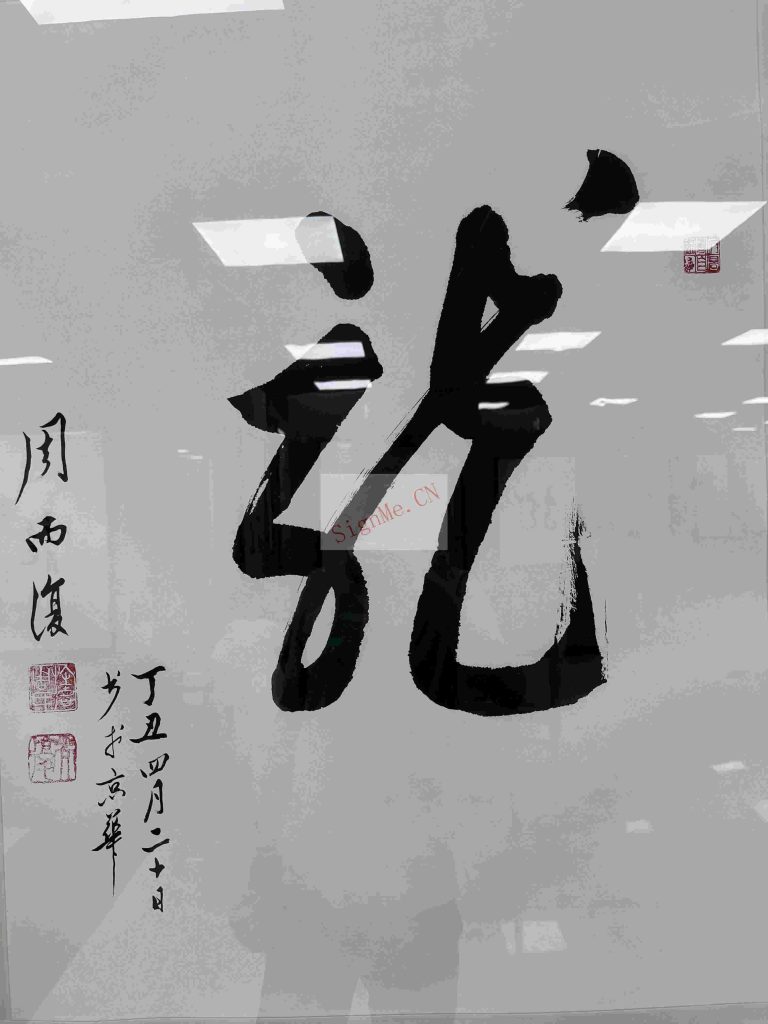 龍
丁丑四月二十日
书于京華
周而復
SignMe.CN